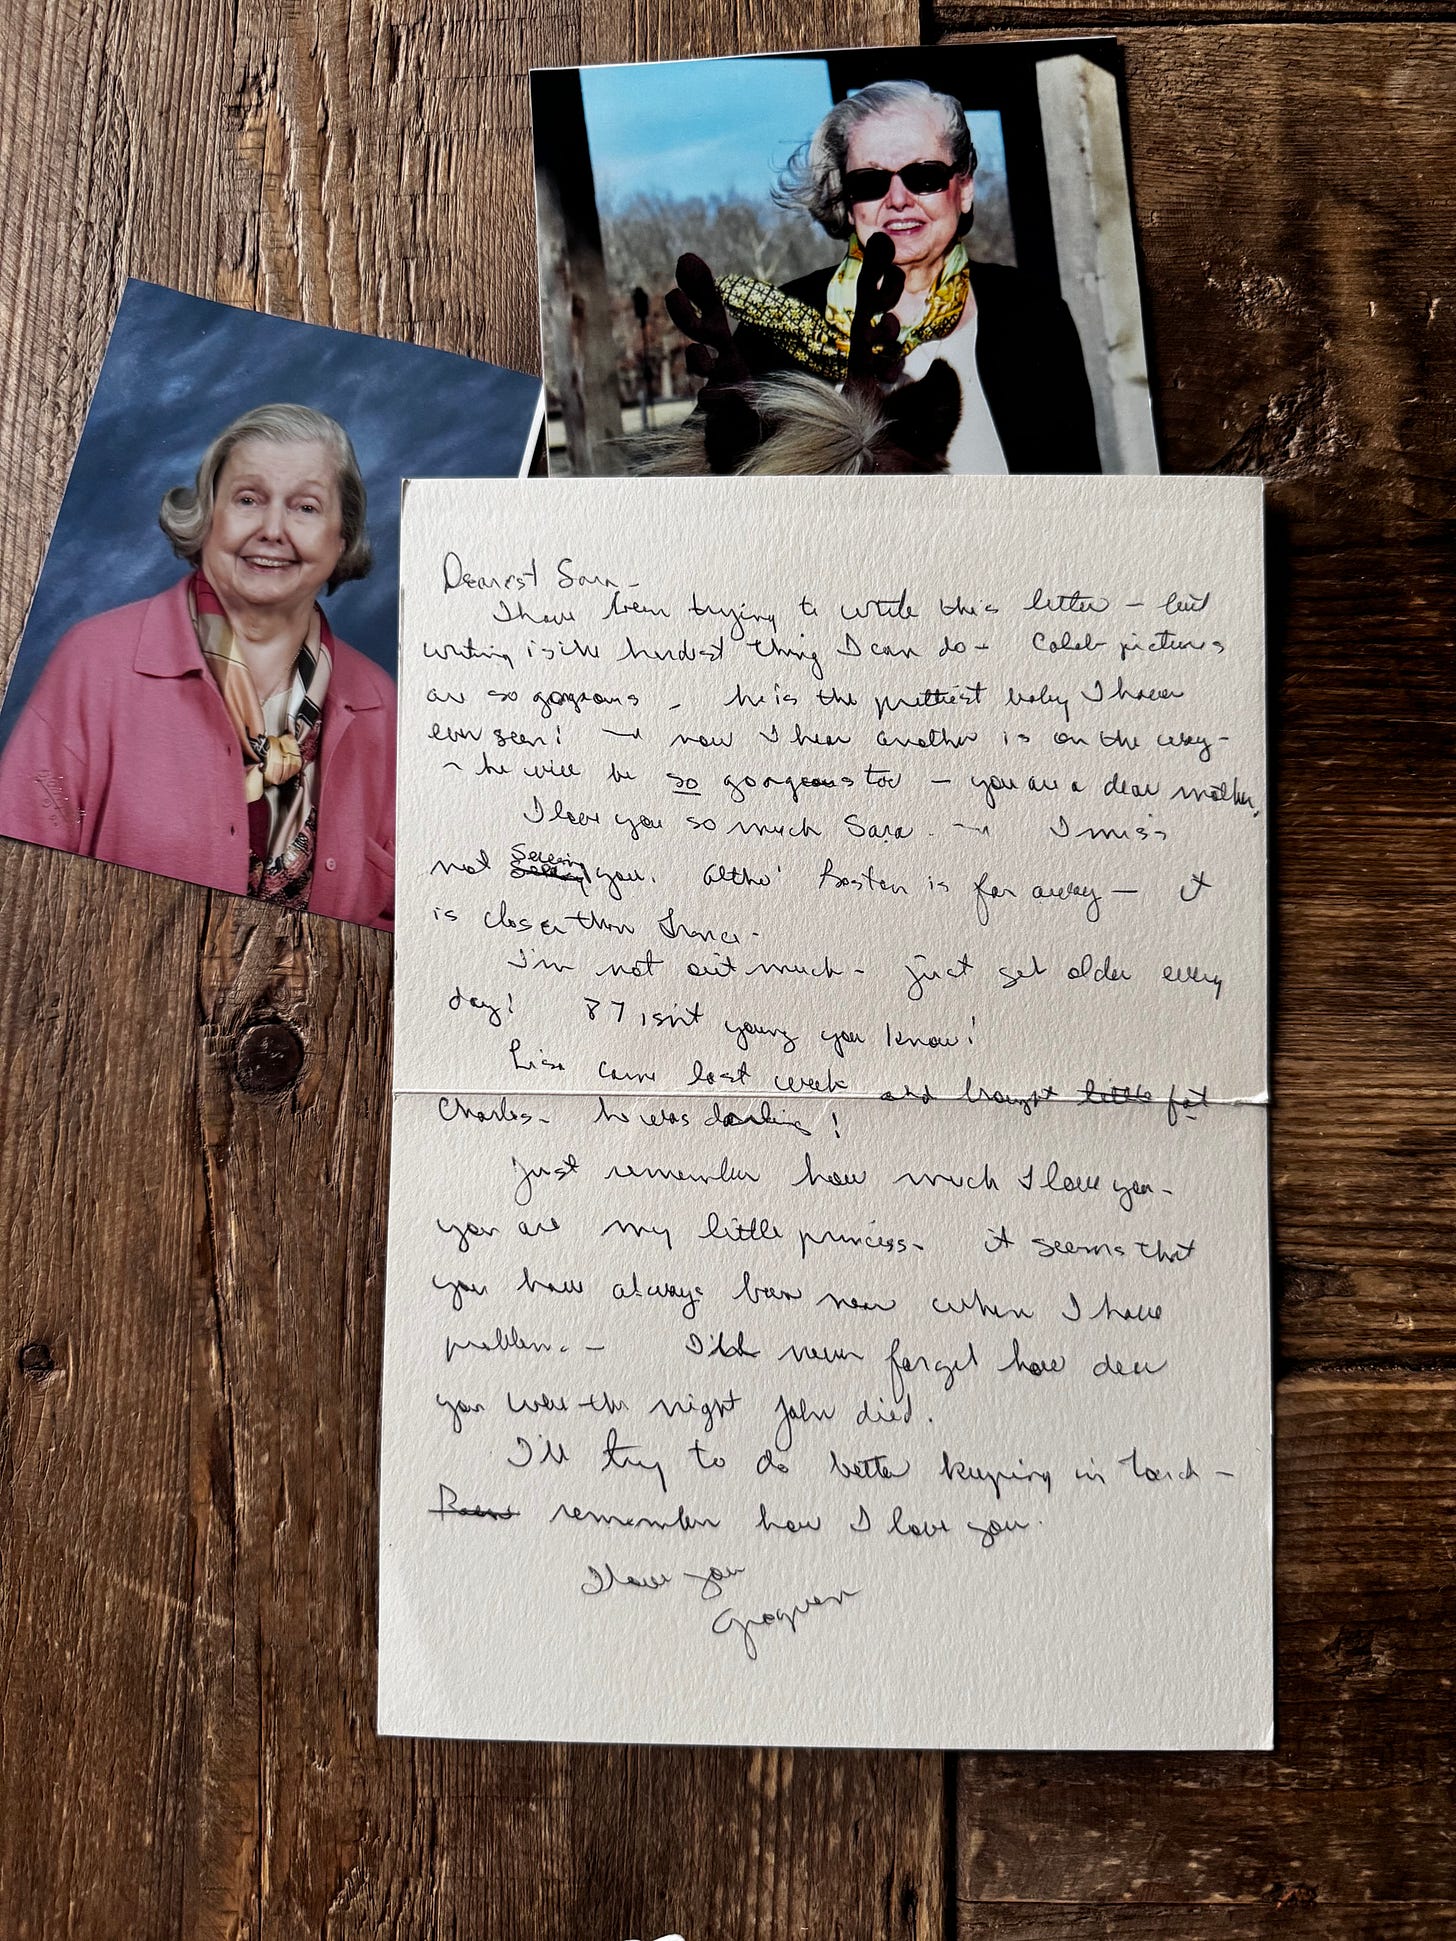 Dearest Sara -
I have been trying to write this letter - but
writing is the hardest thing I can do - Caleb pictures
are so gorgeous - he is the prettiest baby I have
ever seen! now I hear another is on the way -
he will be so gorgeous too - you are a dear mother.
I love you so much Sara. I miss
not seeing you. altho' Boston is far away - it
is closer than France -
I'm not out much - just get older every
day! 87 isn't young you know!
Lisa came last week and brought little fat
Charles - he was darling!
Just remember how much I love you -
you are my little princess - it seems that
you have always been near when I have
problems - I'll never forget how dear
you were the night John died.
I'll try to do better keeping in touch -
remember how I love you.
I love you